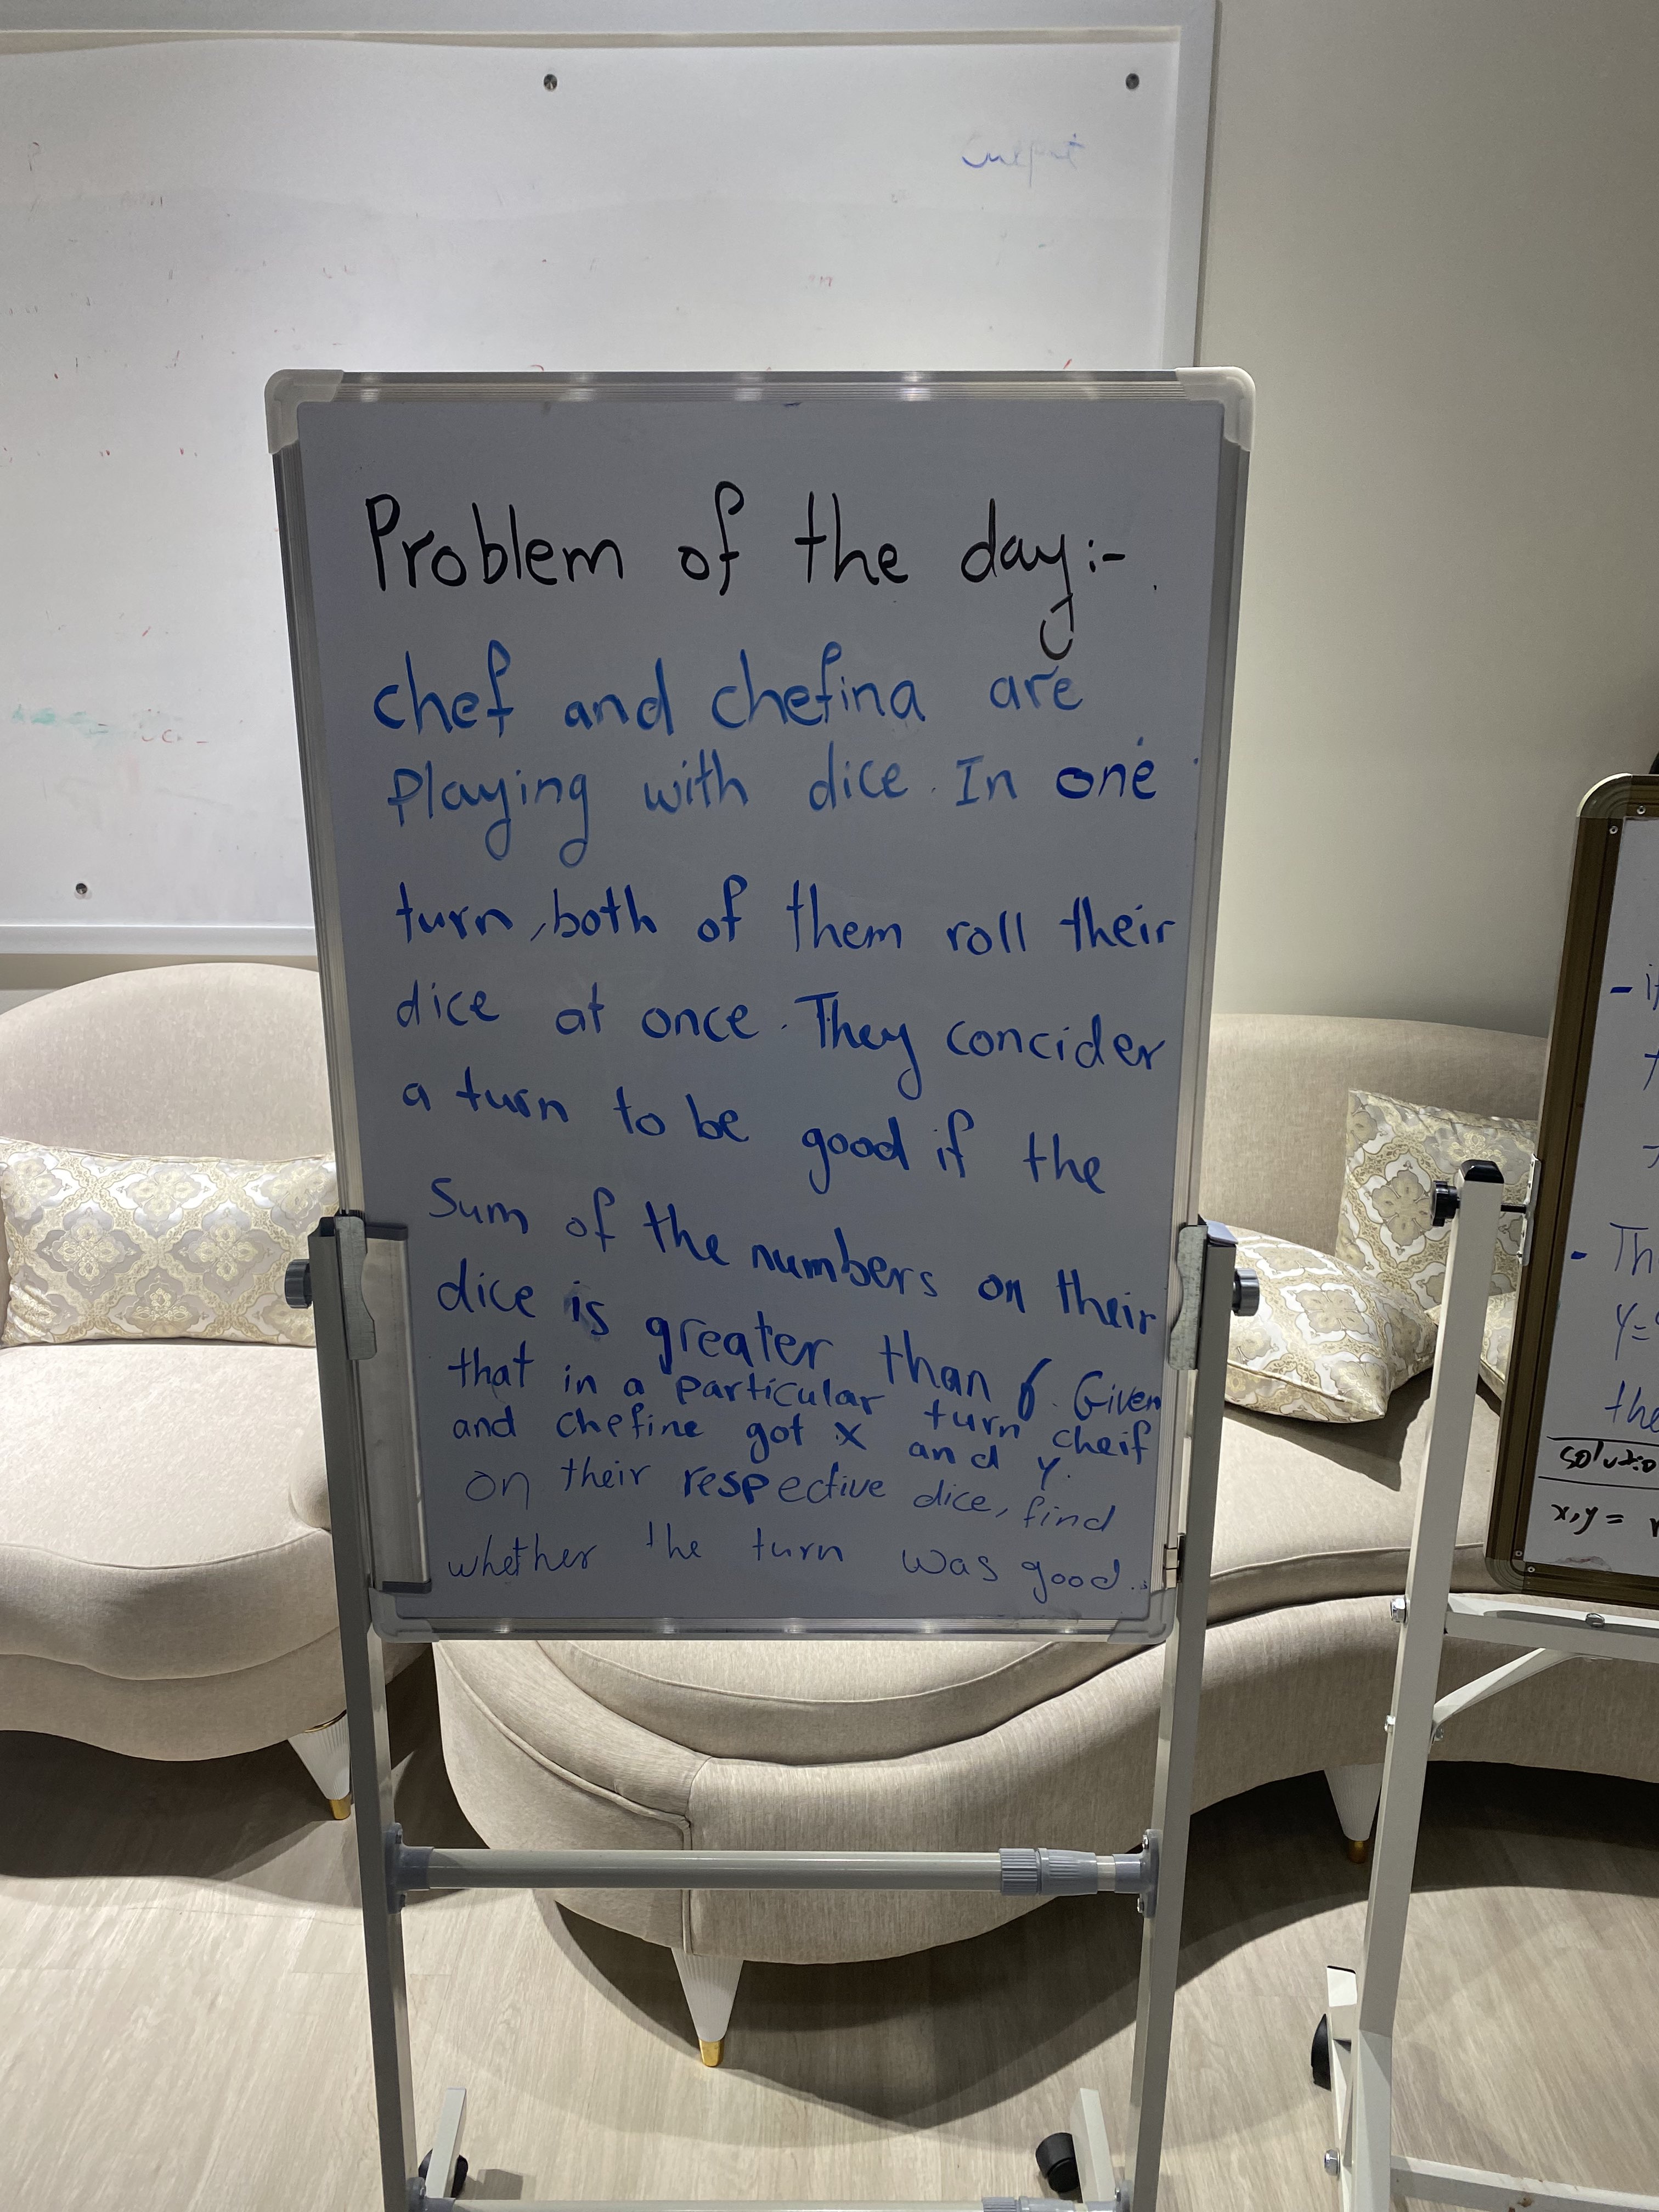 Problem of the day:-
chef and chefina are
Playing with dice. In one
turn, both of them roll their
dice at once. They concider
a turn to be good if the
Sum of the numbers on their
dice is greater than 6. Given
that in a particular turn cheif
and chefine got x and y.
on their respective dice, find
whether the turn was good.
- if
- Th
Y=
the
x,y =